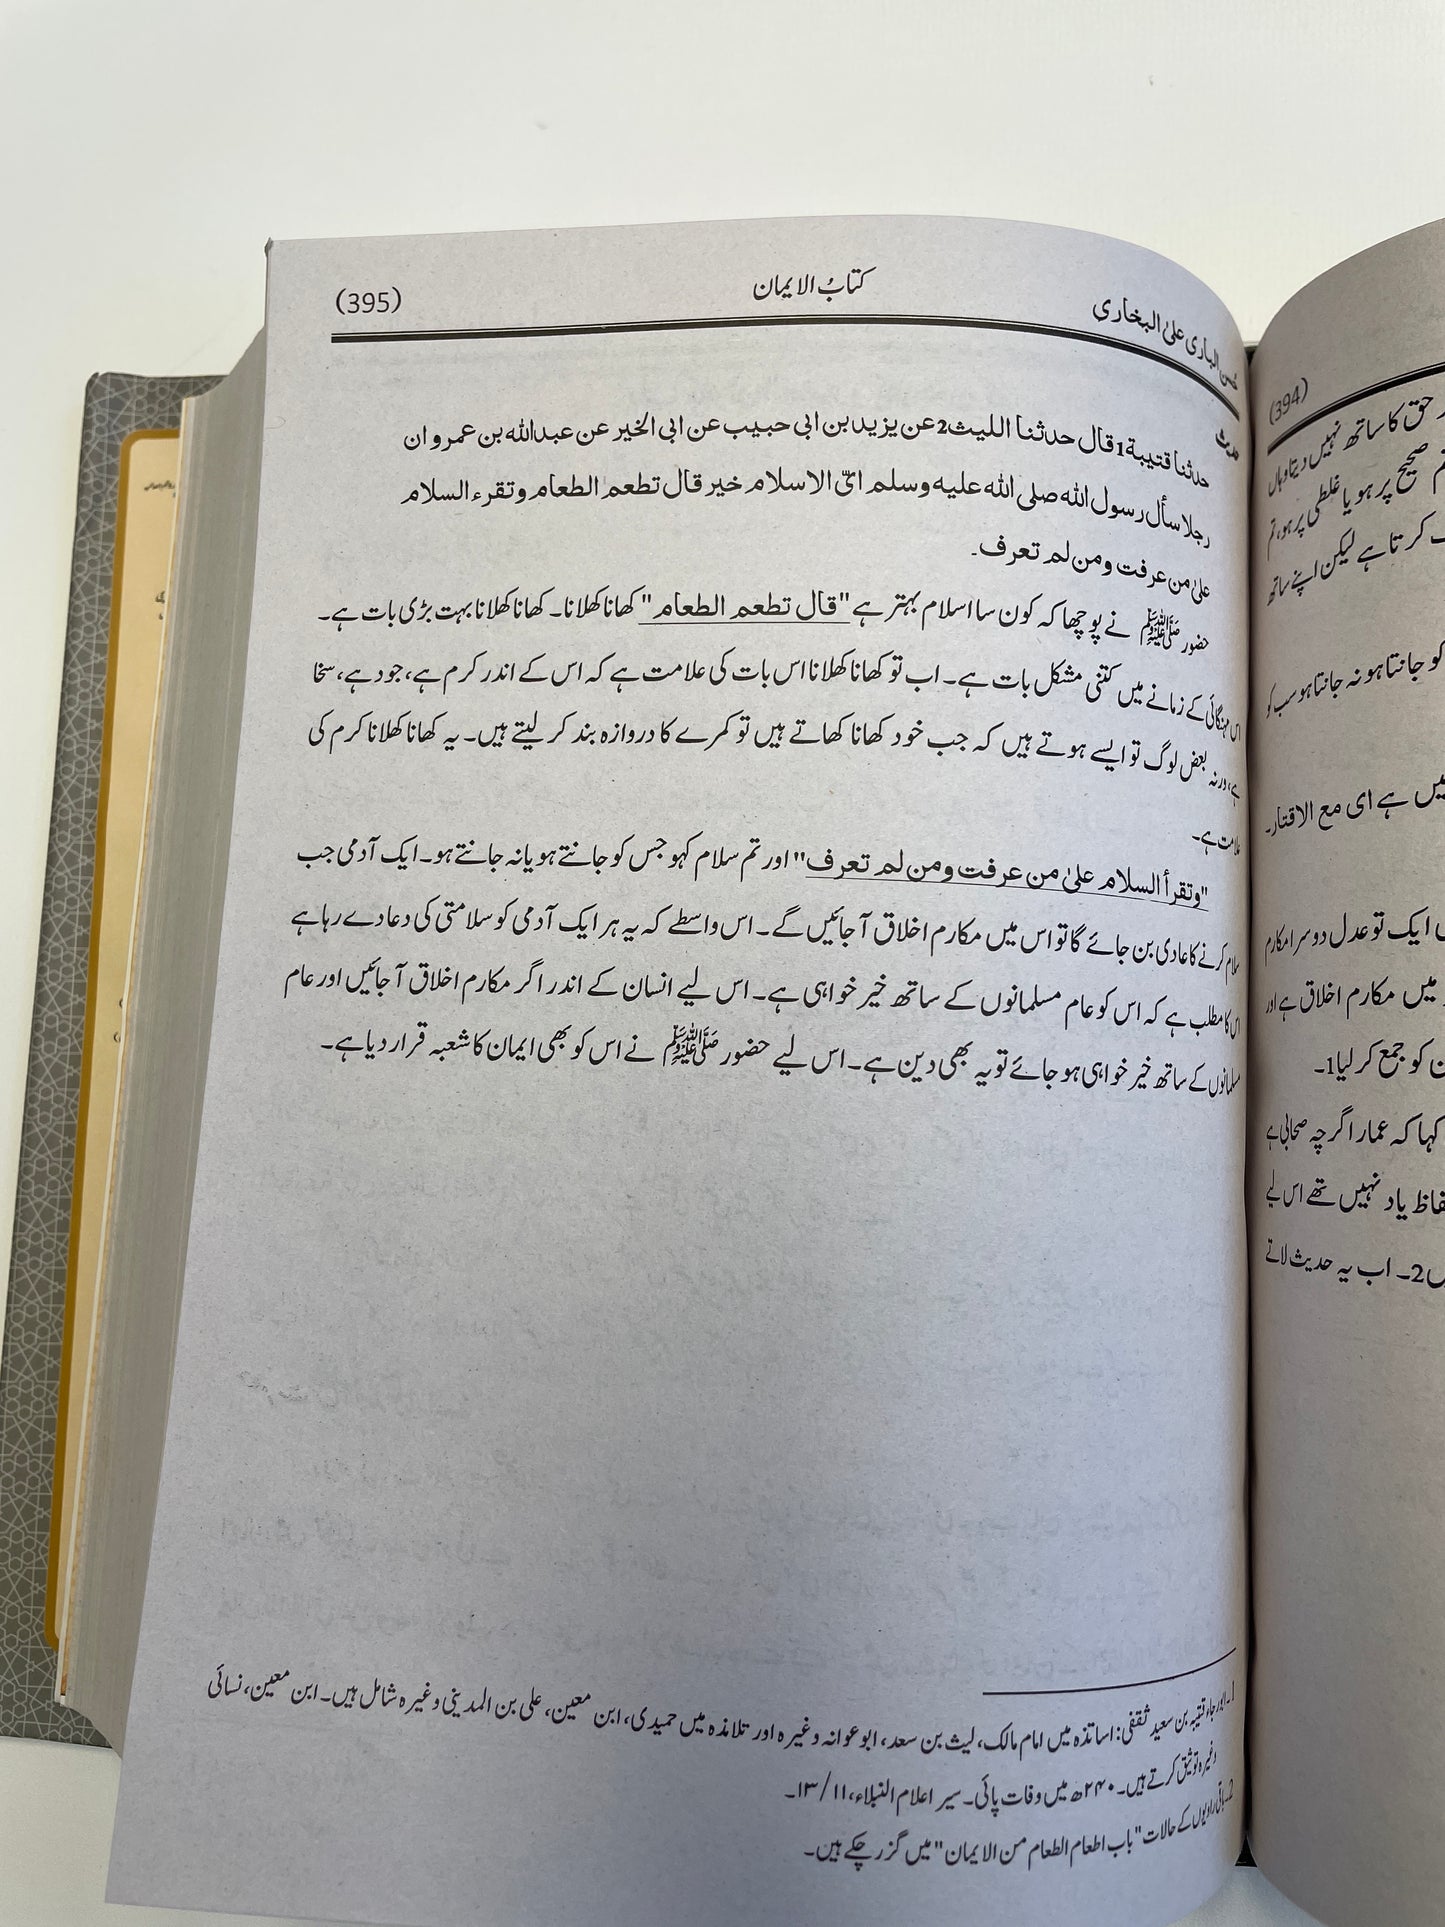 (395)
کتابُ الایمان
الباری علیٰ البخاری
حدیث
حدثنا قتیبة1 قال حدثنا اللیث2 عن یزید بن ابی حبیب عن ابی الخیر عن عبدالله بن عمرو ان
رجلا سأل رسول الله صلی الله علیه وسلم ایّ الاسلام خیر قال تطعم الطعام وتقرء السلام
علیٰ من عرفت ومن لم تعرف۔
حضور ﷺ نے پوچھا کہ کون سا اسلام بہتر ہے "قال تطعم الطعام" کھانا کھلانا۔ کھانا کھلانا بہت بڑی بات ہے۔
اس مہنگائی کے زمانے میں کتنی مشکل بات ہے۔ اب تو کھانا کھلانا اس بات کی علامت ہے کہ اس کے اندر کرم ہے، جود ہے، سخا
ہے، ورنہ بعض لوگ تو ایسے ہوتے ہیں کہ جب خود کھانا کھاتے ہیں تو کمرے کا دروازہ بند کر لیتے ہیں۔ یہ کھانا کھلانا کرم کی
علامت ہے۔
"وتقرأ السلام علیٰ من عرفت ومن لم تعرف" اور تم سلام کہو جس کو جانتے ہو یا نہ جانتے ہو۔ ایک آدمی جب
سلام کرنے کا عادی بن جائے گا تو اس میں مکارم اخلاق آ جائیں گے۔ اس واسطے کہ یہ ہر ایک آدمی کو سلامتی کی دعا دے رہا ہے
اس کا مطلب ہے کہ اس کو عام مسلمانوں کے ساتھ خیر خواہی ہے۔ اس لیے انسان کے اندر اگر مکارم اخلاق آ جائیں اور عام
مسلمانوں کے ساتھ خیر خواہی ہو جائے تو یہ بھی دین ہے۔ اس لیے حضور ﷺ نے اس کو بھی ایمان کا شعبہ قرار دیا ہے۔
1۔ ابو رجاء قتیبہ بن سعید ثقفی: اساتذہ میں امام مالک، لیث بن سعد، ابو عوانہ وغیرہ اور تلامذہ میں حمیدی، ابن معین، علی بن المدینی وغیرہ شامل ہیں۔ ابن معین، نسائی
وغیرہ توثیق کرتے ہیں۔ ۲۴۰ھ میں وفات پائی۔ سیر اعلام النبلاء، ۱۱/ ۱۳۔
2۔ باقی راویوں کے حالات "باب اطعام الطعام من الایمان" میں گزر چکے ہیں۔
(394)
حق کا ساتھ نہیں دیتا وہاں
صحیح پر ہو یا غلطی پر ہو، تم
کرتا ہے لیکن اپنے ساتھ
کو جانتا ہو نہ جانتا ہو سب کو
ہے ای مع الاقتار۔
ایک تو عدل دوسرا مکارم
میں مکارم اخلاق ہے اور
کو جمع کر لیا1۔
کہا کہ عمار اگرچہ صحابی ہے
یاد نہیں تھے اس لیے
2۔ اب یہ حدیث لاتے